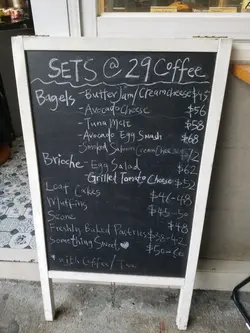 SETS @ 29 Coffee
Bagels - Butter/Jam/Creamcheese $45
- Avocado Cheese $56
- Tuna Melt $58
- Avocado Egg Smash $68
- Smoked Salmon Cream Cheese
Brioche - Egg Salad $62
- Grilled Tomato Cheese $52
Loaf Cakes $46-48
Muffins $45-50
Scone $48
Freshly Baked Pastries $38-42
Something Sweet $50-60
* with Coffee/Tea